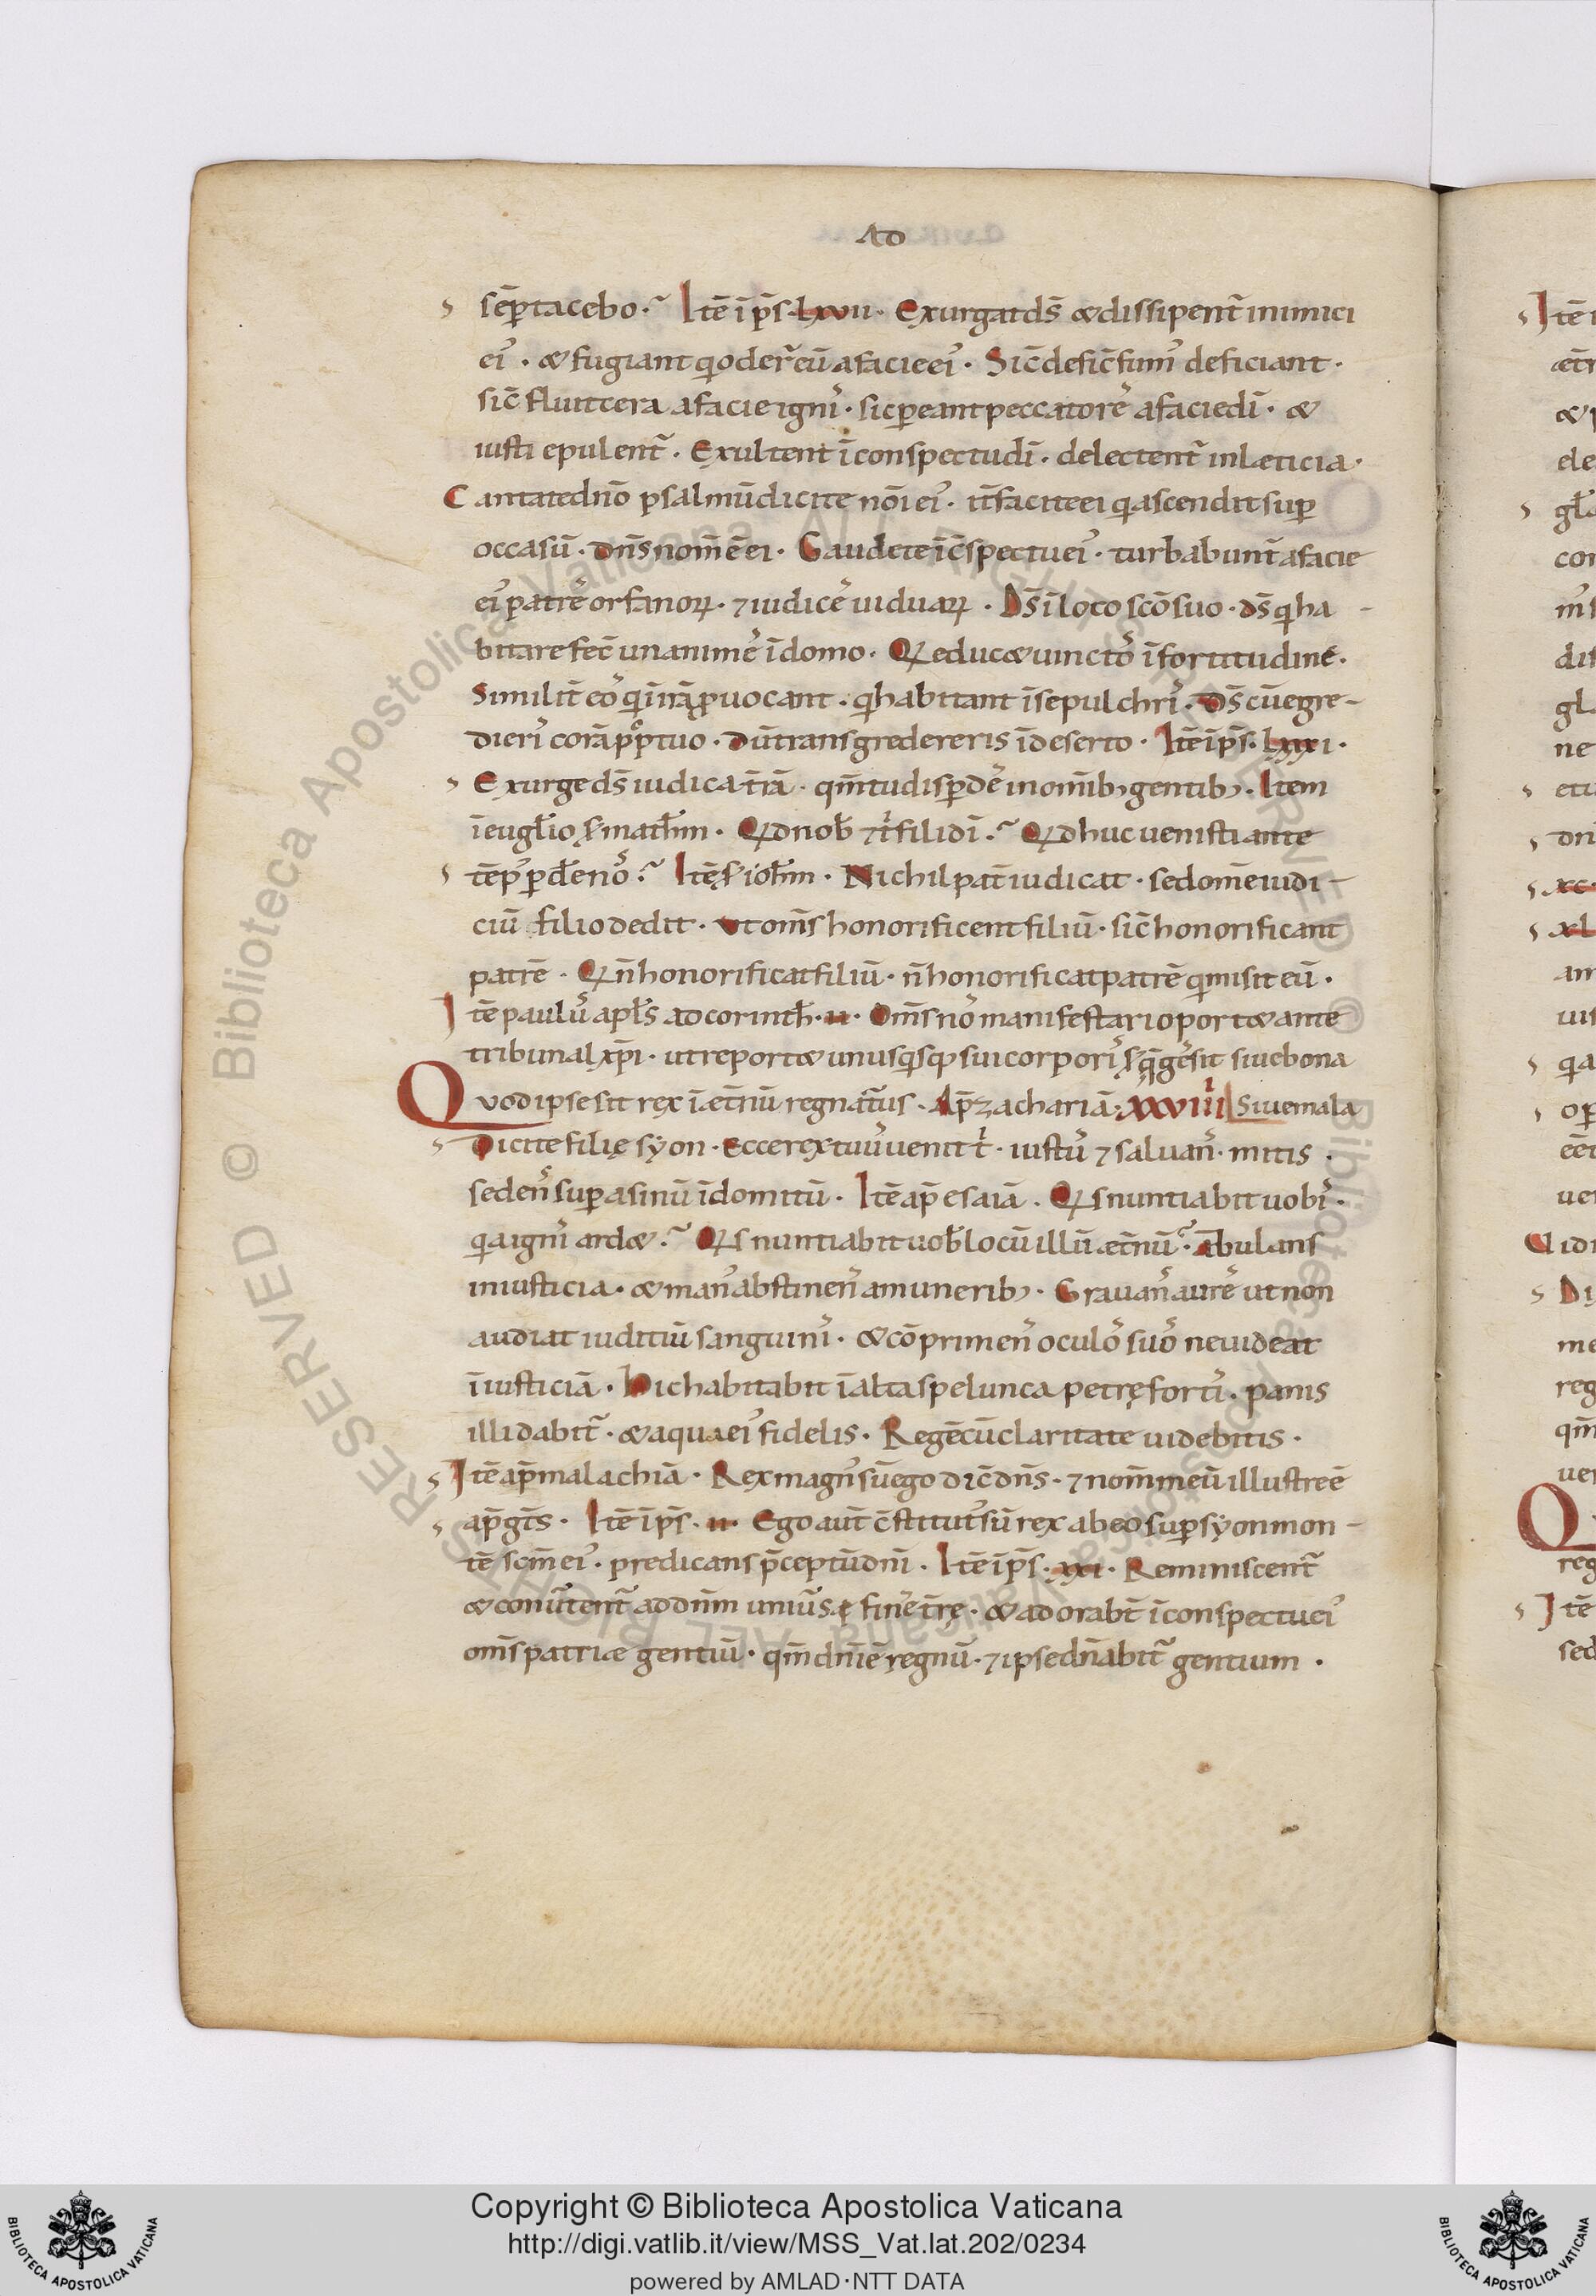 AD
sēp tacebo. Itē ī ps̄. lxvii. Exurgat ds̄ & dissipent̄ inimici
ei᾽. & fugiant q̄ oder̄ eū a facie ei᾽. Sic̄ defic̄ fum᾽ deficiant.
sic̄ fluit cera a facie igni᾽. sic pereant peccatore᾽ a facie dī. &
iusti epulent̄. Exultent ī conspectu dī. delectent̄ in læticia.
Cantate dn̄o psalmū dicite nōi ei᾽. it̄ facite ei q̄ ascendit sup
occasū. dn̄s nom̄ ē ei. Gaudete ī c̄spectu ei᾽. turbabunt̄ a facie
ei᾽ patre᾽ orfanoꝝ. ⁊ iudice᾽ uiduaꝝ. Ds̄ ī loco scō suo. ds̄ q̄ ha-
bitare fec̄ unanime᾽ ī domo. Q educ& uincto᾽ ī fortitudine.
Similit̄ eo᾽ q̄ ī irā ꝓuocant. q̄ habitant ī sepulchri᾽. Ds̄ cū egre-
dieri᾽ corā pp̊lo tuo. dū transgredereris ī deserto. Itē ī ps̄. lxxxi.
Exurge ds̄ iudica tr̄ā. qm̄ tu disp̄de᾽ in om̄ib; gentib;. Item
ī eugl̄io s̄ math̄m. Qd nob̄ ⁊ t̊ fili dī. Qd huc uenisti ante
tēp᾽ pd̄e no᾽. Itē s̄ ioh̄m. Nichil pat̄ iudicat. sed om̄e iudi-
ciū filio dedit. ut om̄s honorificent filiū. sic̄ honorificant
patrē. Q n̄ honorificat filiū. n̄ honorificat patrē q̄ misit eū.
Itē paulu᾽ apl̄s ad corinth̄. ii. Om̄s no᾽ manifestari oport& ante
tribunal xp̄i. ut report& unusq̄sq; sui corpori᾽ s̄ q̄ gēsit siue bona
Quod ipse sit rex ī æt̄nū regnatu᾽s. Ap̄ zachariā. XXVIIII Siue mala
Dicite filię syon. Ecce rex tuu᾽ uenit t̊. iustu᾽ ⁊ saluan᾽. mitis.
seden᾽ sup asinū īdomitū. Itē ap̄ esaiā. Qs nuntiabit uobi᾽.
q̄a igni᾽ ard&. Qs nuntiabit uob̄ locū illū æt̄nū. Ābulans
in iusticia. & man᾽ abstinen᾽ a munerib;. Grauan᾽ aure᾽ ut non
audiat iuditiū sanguini᾽. & cōprimen᾽ oculo᾽ suo᾽ ne uideat
īiusticiā. Hic habitabit ī alta spelunca petrę forti᾽. panis
illi dabit̄. & aqua ei᾽ fidelis. Regē cū claritate uidebitis.
Itē ap̄ malachiā. Rex magn᾽ sū ego dic̄ dn̄s. ⁊ nom̄ meū illustre ē
ap̄ gt̄s. Itē ī ps̄. ii. Ego aut̄ c̄stitut᾽ sū rex ab eo sup syon mon-
tē scm̄ ei᾽. predicans p̄ceptū dn̄i. Itē ī ps̄. xxi. Reminiscent̄
& conūtent̄ ad dn̄m uniūsę fine᾽ tr̄ę. & adorabt̄ ī conspectu ei᾽
om̄s patriæ gentiū. qm̄ dn̄i ē regnū. ⁊ ipse dn̄abit̄ gentium.
Copyright © Biblioteca Apostolica Vaticana
http://digi.vatlib.it/view/MSS_Vat.lat.202/0234
powered by AMLAD·NTT DATA